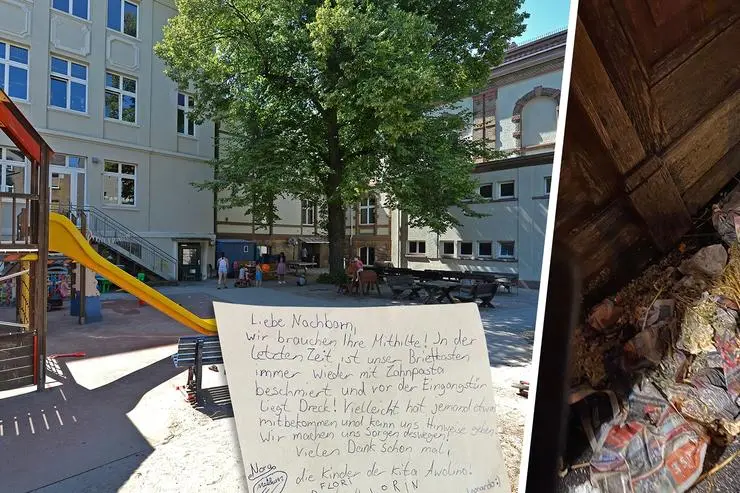 Liebe Nachbarn,
wir brauchen Ihre Mithilfe! In der
letzten Zeit ist unser Briefkasten
immer wieder mit Zahnpasta
beschmiert und vor der Eingangstür
liegt Dreck! Vielleicht hat jemand etwas
mitbekommen und kann uns Hinweise geben.
Wir machen uns Sorgen deswegen!
Vielen Dank schon mal,
die Kinder der Kita Awolino!
FLORI
LORIN